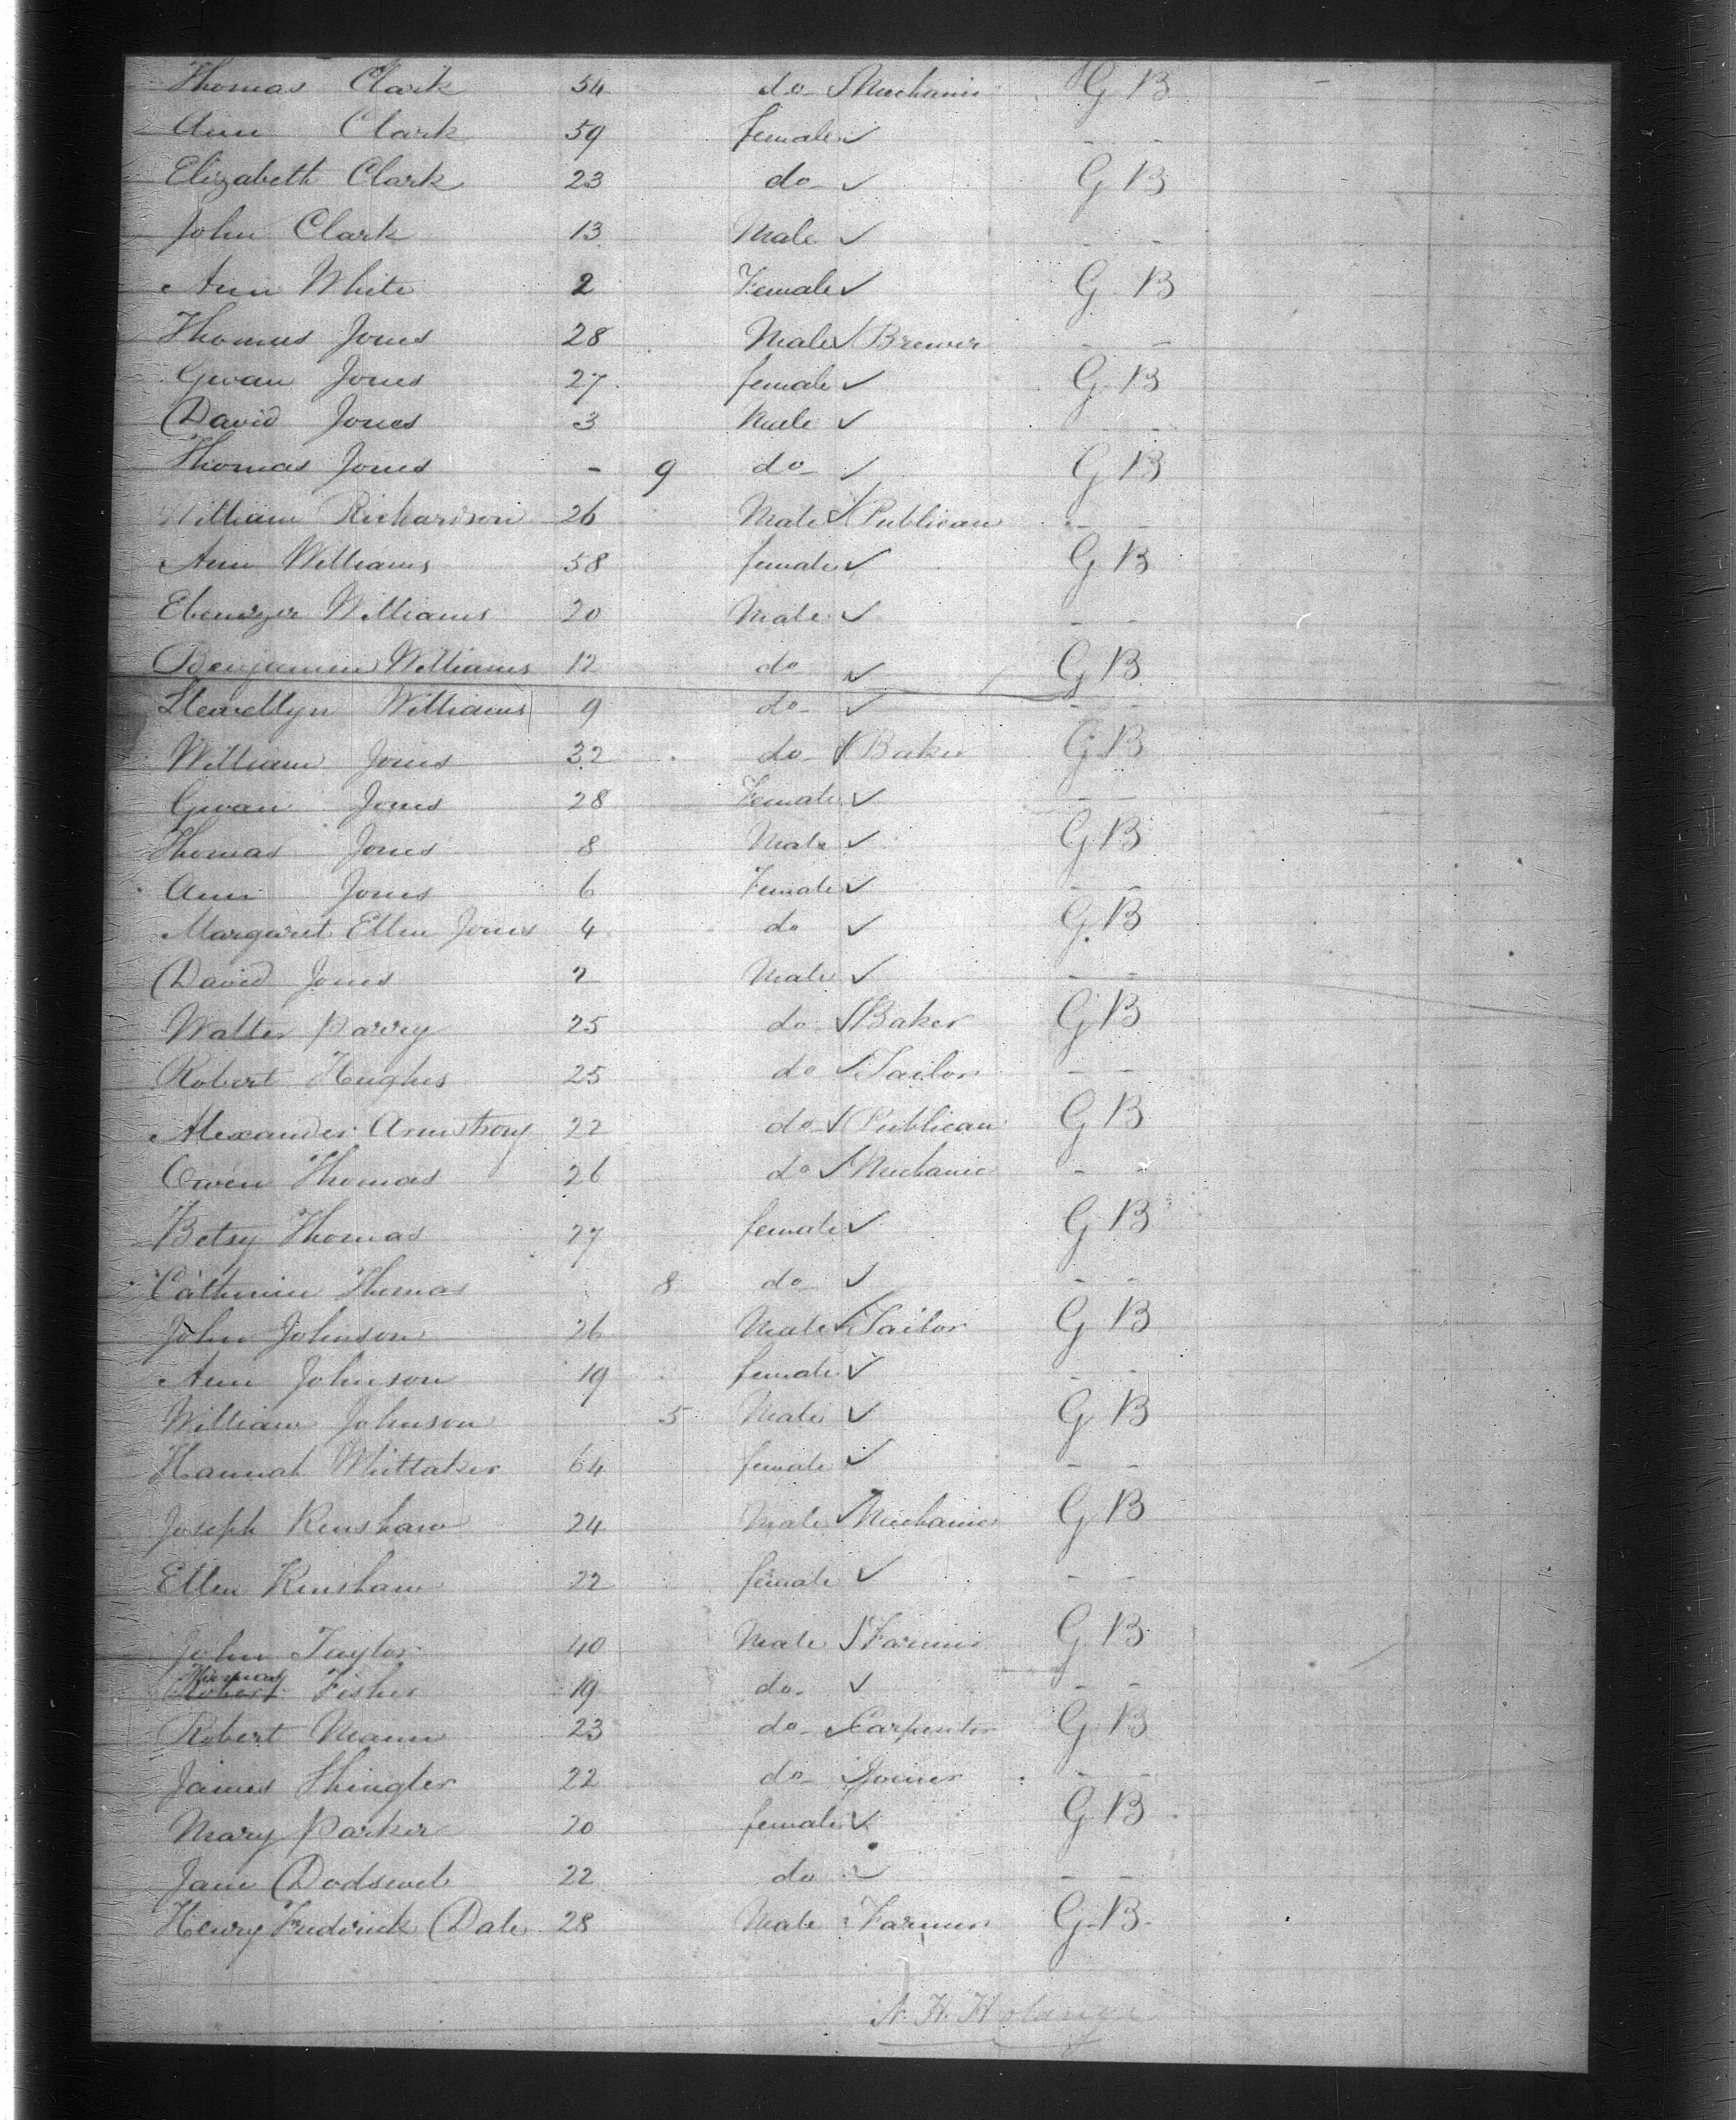 Thomas Clark 54 do Mechanic G B
Ann Clark 59 female ✓ - -
Elizabeth Clark 23 do ✓ G B
John Clark 13 Male ✓ - -
Ann White 2 Female ✓ G B
Thomas Jones 28 Male ✓ Brewer - -
Gwan Jones 27 female ✓ G B
David Jones 3 Male ✓ - -
Thomas Jones - 9 do ✓ G B
William Richardson 26 Male ✓ Publican - -
Ann Williams 58 female ✓ G B
Ebenezer Williams 20 Male ✓ - -
Benjamin Williams 12 do ✓ G B
Llewellyn Williams 9 do ✓ - -
William Jones 32 do ✓ Baker G B
Gwan Jones 28 Female ✓ - -
Thomas Jones 8 Male ✓ G B
Ann Jones 6 Female ✓ - -
Margaret Ellen Jones 4 do ✓ G B
David Jones 2 Male ✓ - -
Walter Parry 25 do ✓ Baker G B
Robert Hughes 25 do ✓ Tailor - -
Alexander Armstrong 22 do ✓ Publican G B
Owen Thomas 26 do ✓ Mechanic - -
Betsy Thomas 27 female ✓ G B
Catherine Thomas 8 do ✓ - -
John Johnson 26 Male ✓ Tailor G B
Ann Johnson 19 female ✓ - -
William Johnson 5 Male ✓ G B
Hannah Whittaker 64 female ✓ - -
Joseph Renshaw 24 Male ✓ Mechanic G B
Ellen Renshaw 22 female ✓ - -
John Taylor 40 Male ✓ Farmer G B
Thomas
Robert Fisher 19 do ✓ - -
Robert Mann 23 do ✓ Carpenter G B
James Shingler 22 do ✓ Joiner - -
Mary Parker 20 female ✓ G B
Jane 22 do ✓ - -
Henry Frederick Dale 28 Male Farmer G.B.